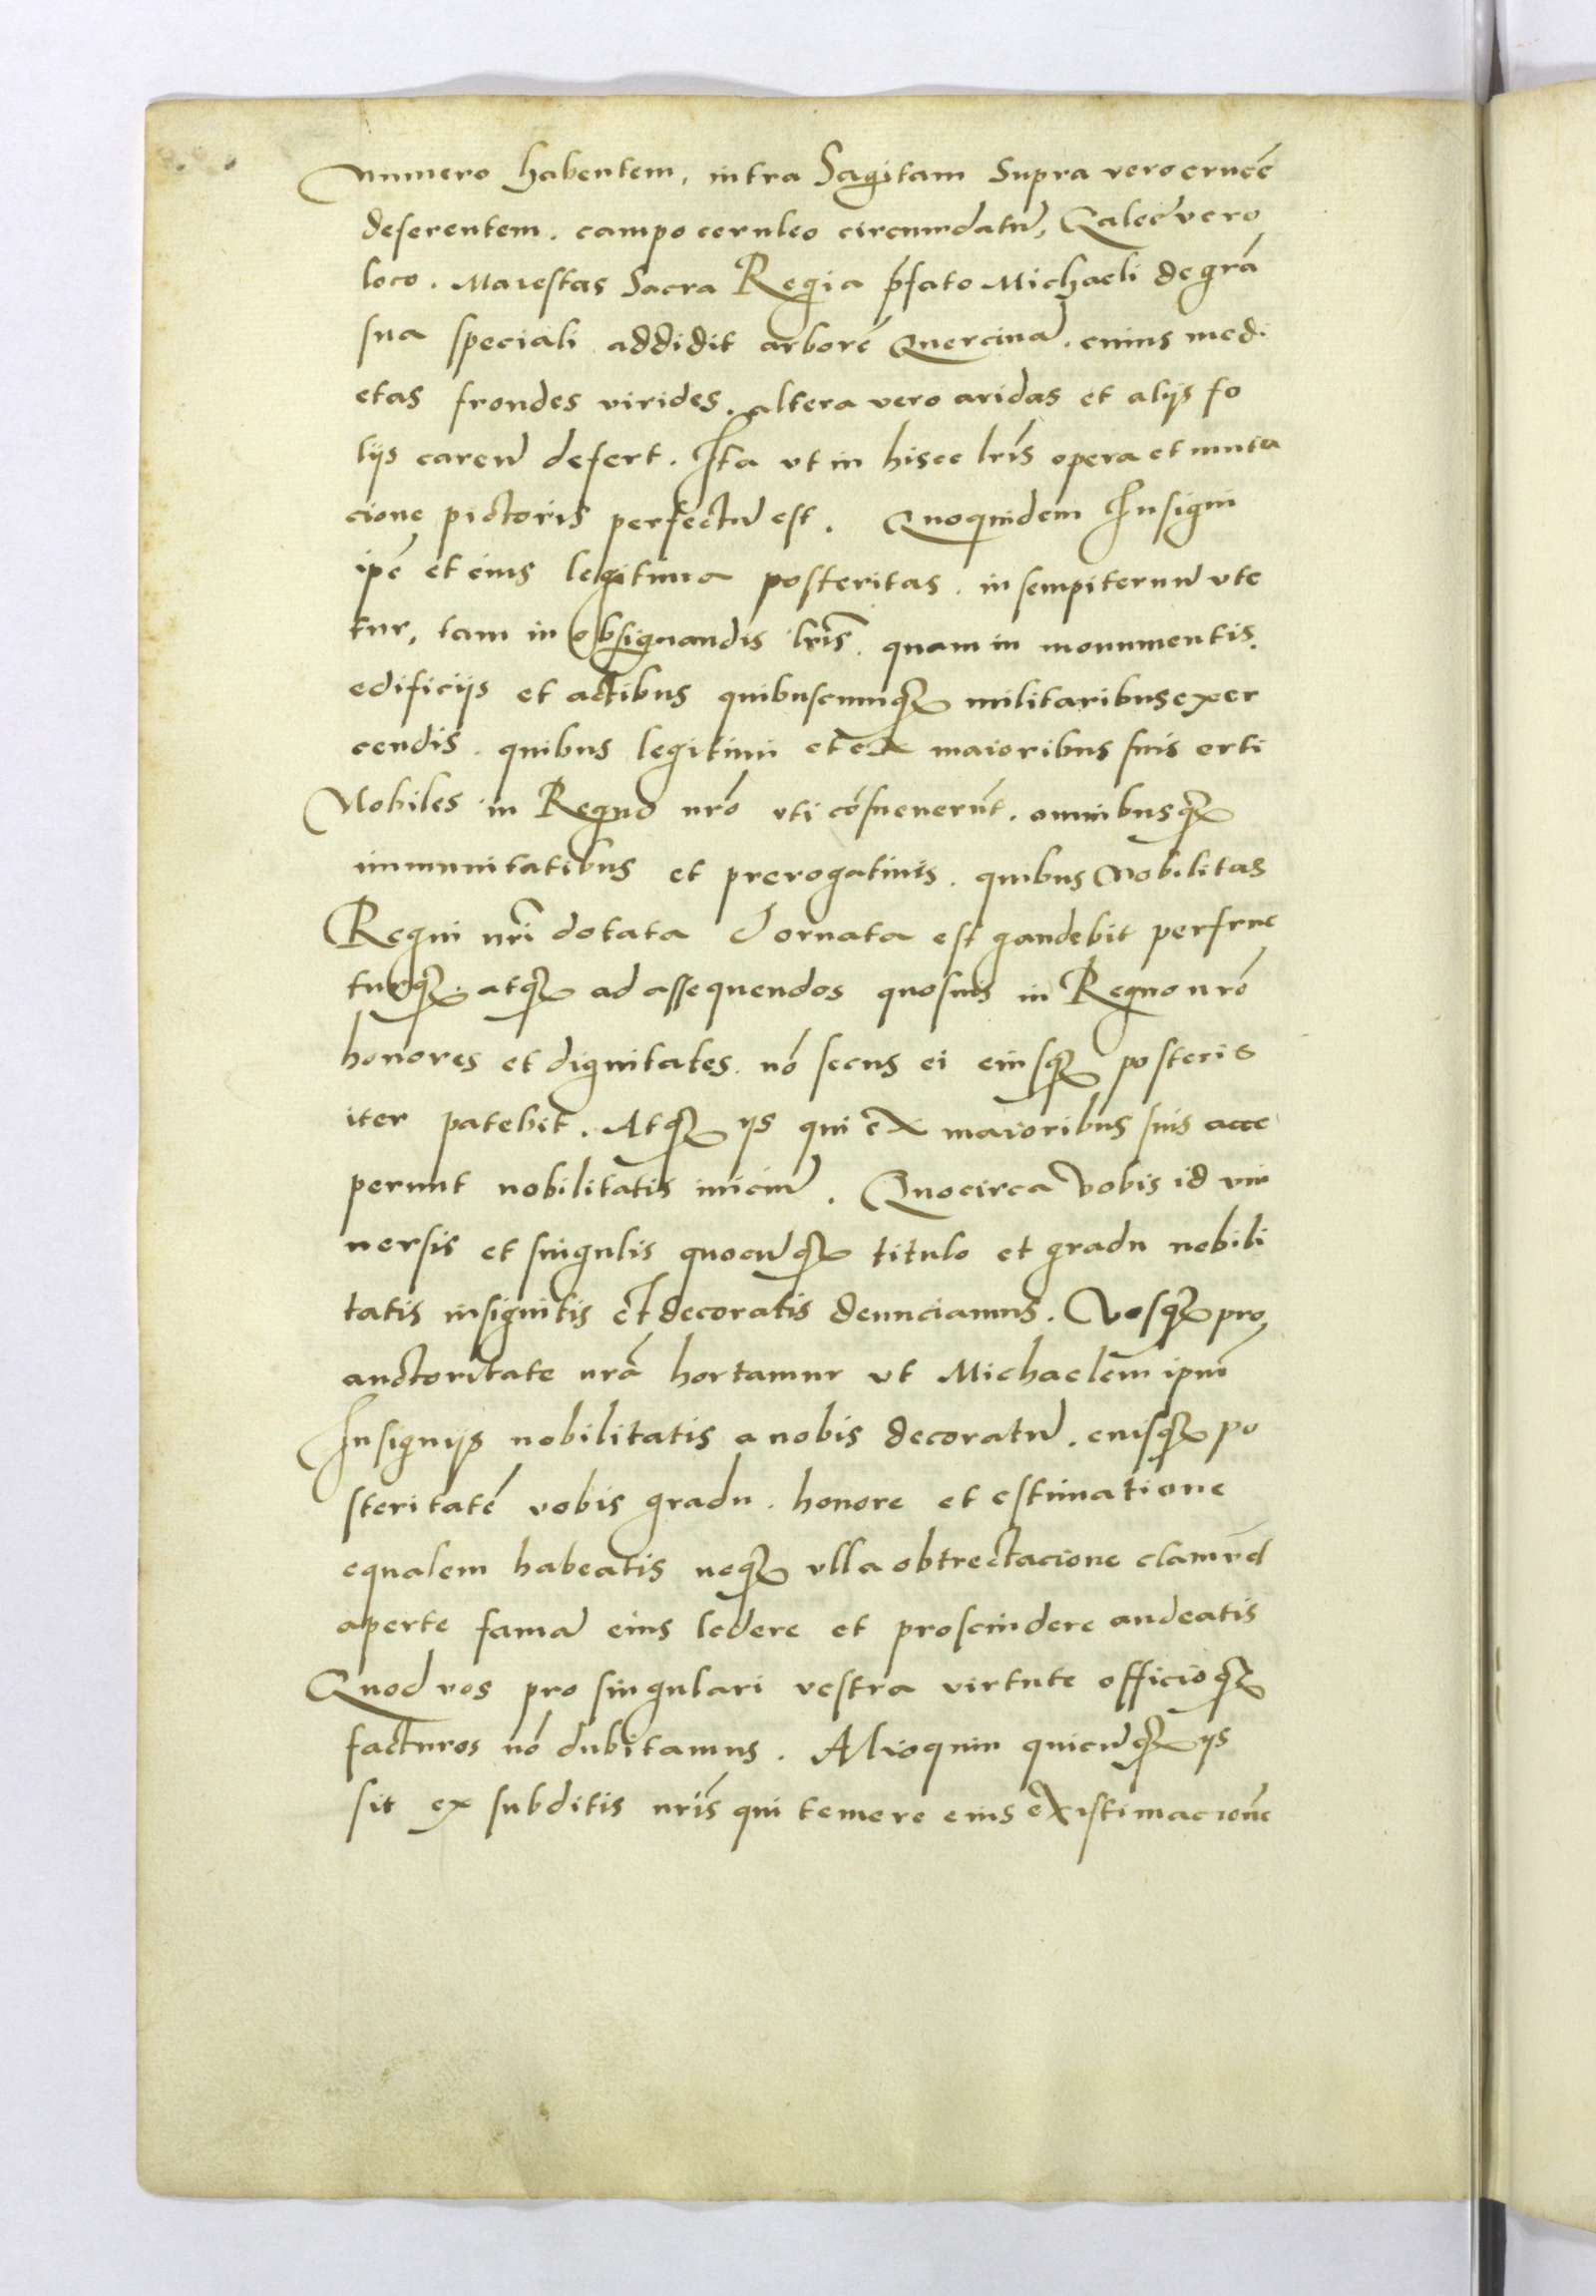 numero habentem, intra Sagitam Supra vero crucẽ
deferentem. campo ceruleo circumdatũ, Galeę vero
loco. Maiestas Sacra Regia p̃fato Michaeli de grã
sua speciali addidit arborẽ Quercinã. cuius medi
etas frondes virides. altera vero aridas et alijs fo
lijs carenũ defert. Ita ut in hisce lrĩs opera et
cione pictoris perfectũ est. Quoquidem Insigni
ipẽ et eius legitima posteritas. in sempiternũ vte
tur, tam in obsignandis lrĩs. quam in monumentis.
edificijs et actibus quibuscumq̃ militaribus exer
cendis. quibus legitimi et ex maioribus suis orti
Nobiles in Regno nrõ vti cõsueuerũt. omnibusq̃
immunitatibus et prerogatiuis. quibus Nobilitas
Regni nrĩ dotata & ornata est gaudebit perfrue
turq̃. atq̃ ad assequendos quosuis in Regno nrõ
honores et dignitates. nõ secus ei eiusq̃ posteris
iter patebit. Atq̃ ijs qui ex maioribus suis acce
perunt nobilitatis iniciũ. Quocirca vobis id vni
uersis et singulis quocũq̃ titulo et gradu nobili
tatis insignitis et decoratis denunciamus. Vosq̃ pro
auctoritate nrã hortamur ut Michaelem ipm̃
Insignijs nobilitatis a nobis decoratũ. eiusq̃ po
steritatẽ vobis gradu. honore et estimatione
equalem habeatis neq̃ vlla obtrectacione clam vel
aperte famã eius ledere et proscindere audeatis
Quod vos pro singulari vestra virtute officioq̃
facturos nõ dubitamus. Alioquin quicũq̃ ijs
sit ex subditis nrĩs qui temere eius existimacionẽ